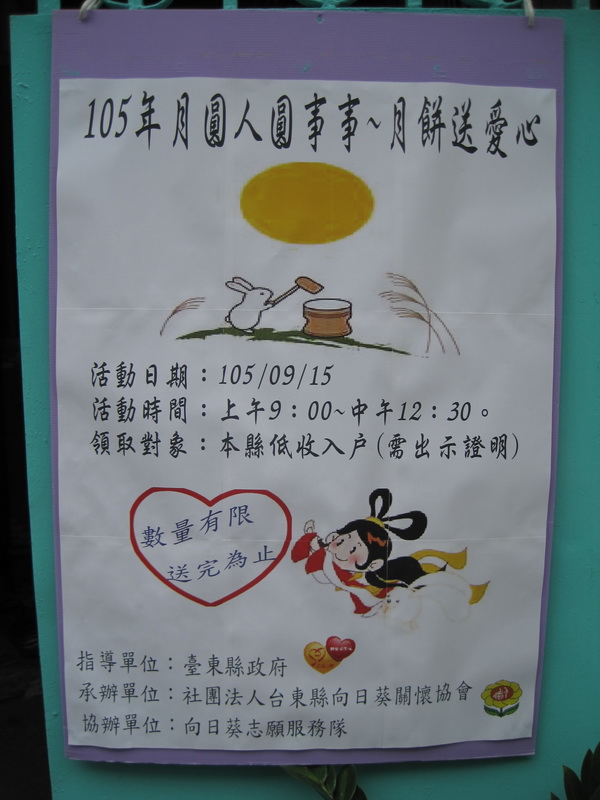 105年月圓人圓事事~月餅送愛心
活動日期：105/09/15
活動時間：上午9：00~中午12：30。
領取對象：本縣低收入戶(需出示證明)
數量有限
送完為止
指導單位：臺東縣政府
承辦單位：社團法人台東縣向日葵關懷協會
協辦單位：向日葵志願服務隊